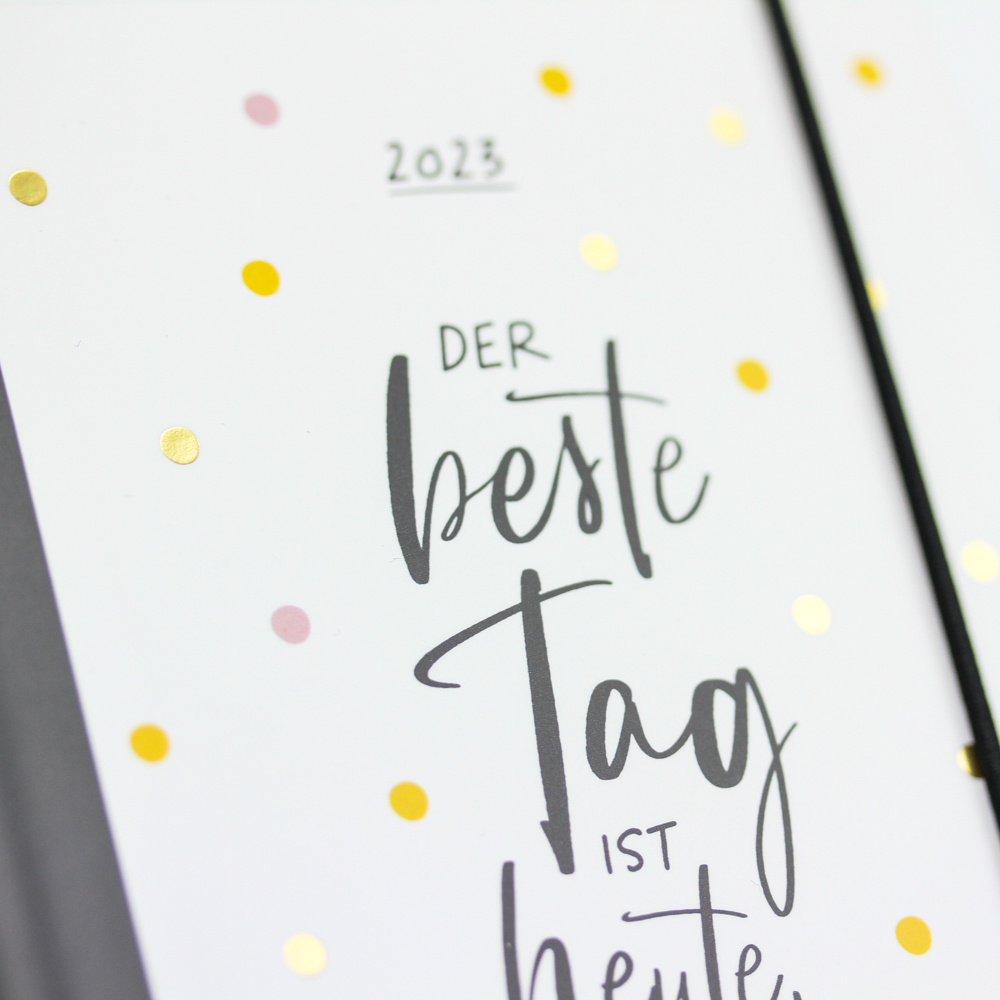 2023
DER
beste
Tag
IST
heute.